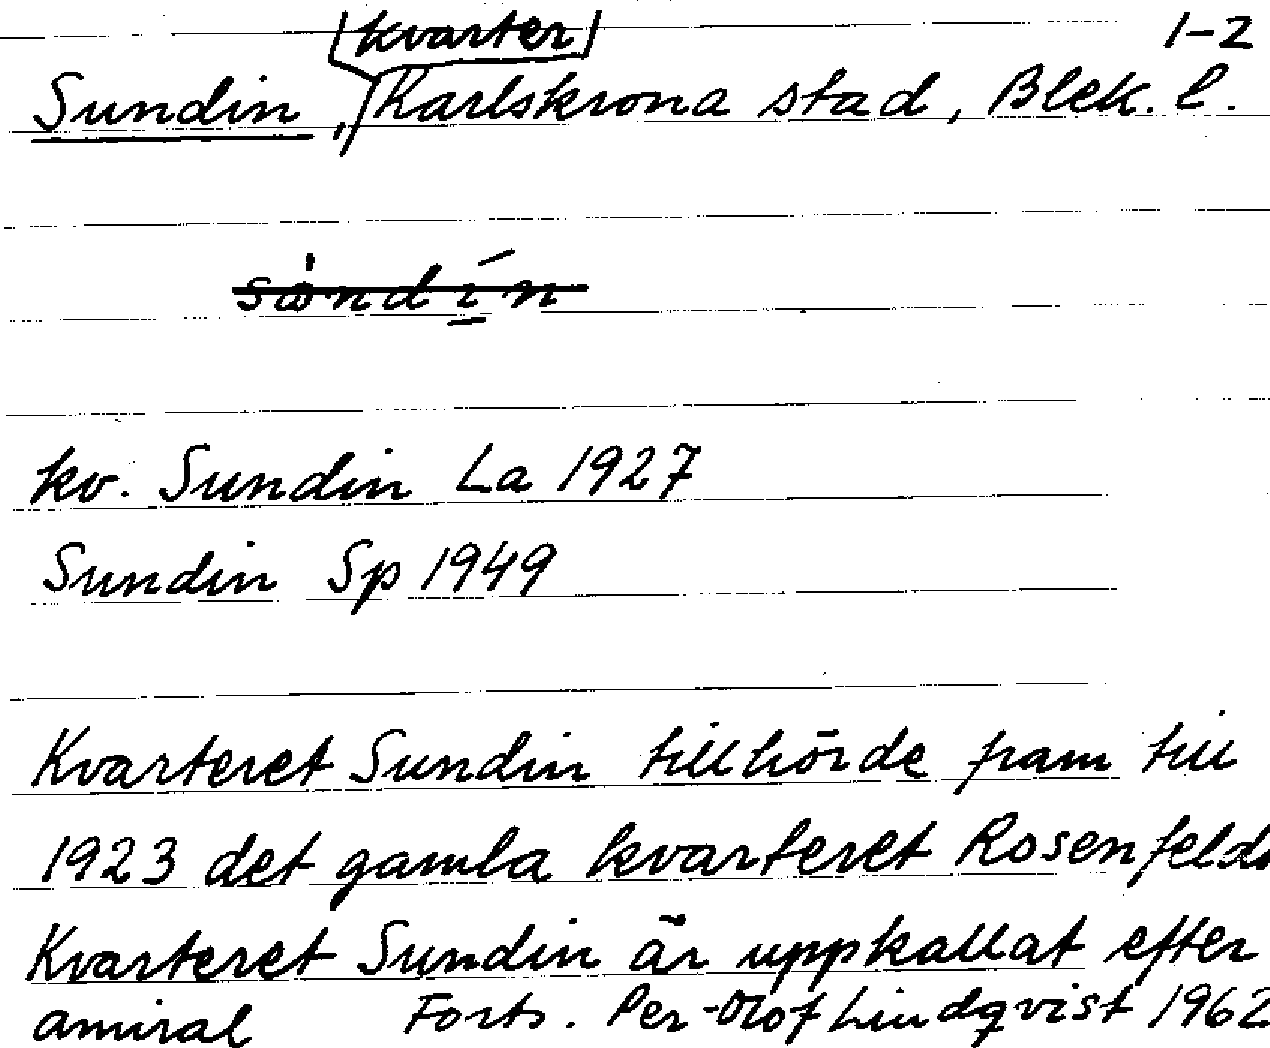 kvarter 1-2
Sundin, Karlskrona stad, Blek. l.
kv. Sundin La 1927
Sundin Sp 1949
Kvarteret Sundin tillhörde fram till
1923 det gamla kvarteret Rosenfeldt
Kvarteret Sundin är uppkallat efter
amiral Forts. Per-Olof Lindqvist 1962